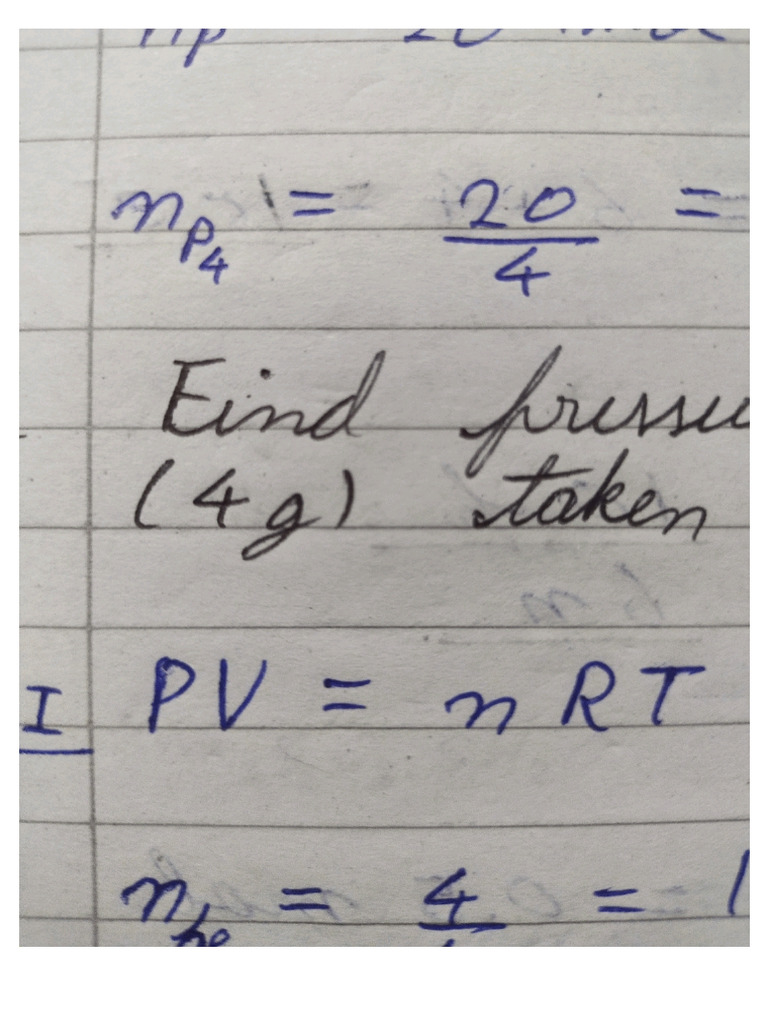 n_P₄ = 20/4 =
Find pressu
(4g) taken
I PV = nRT
n_he = 4/ = 1